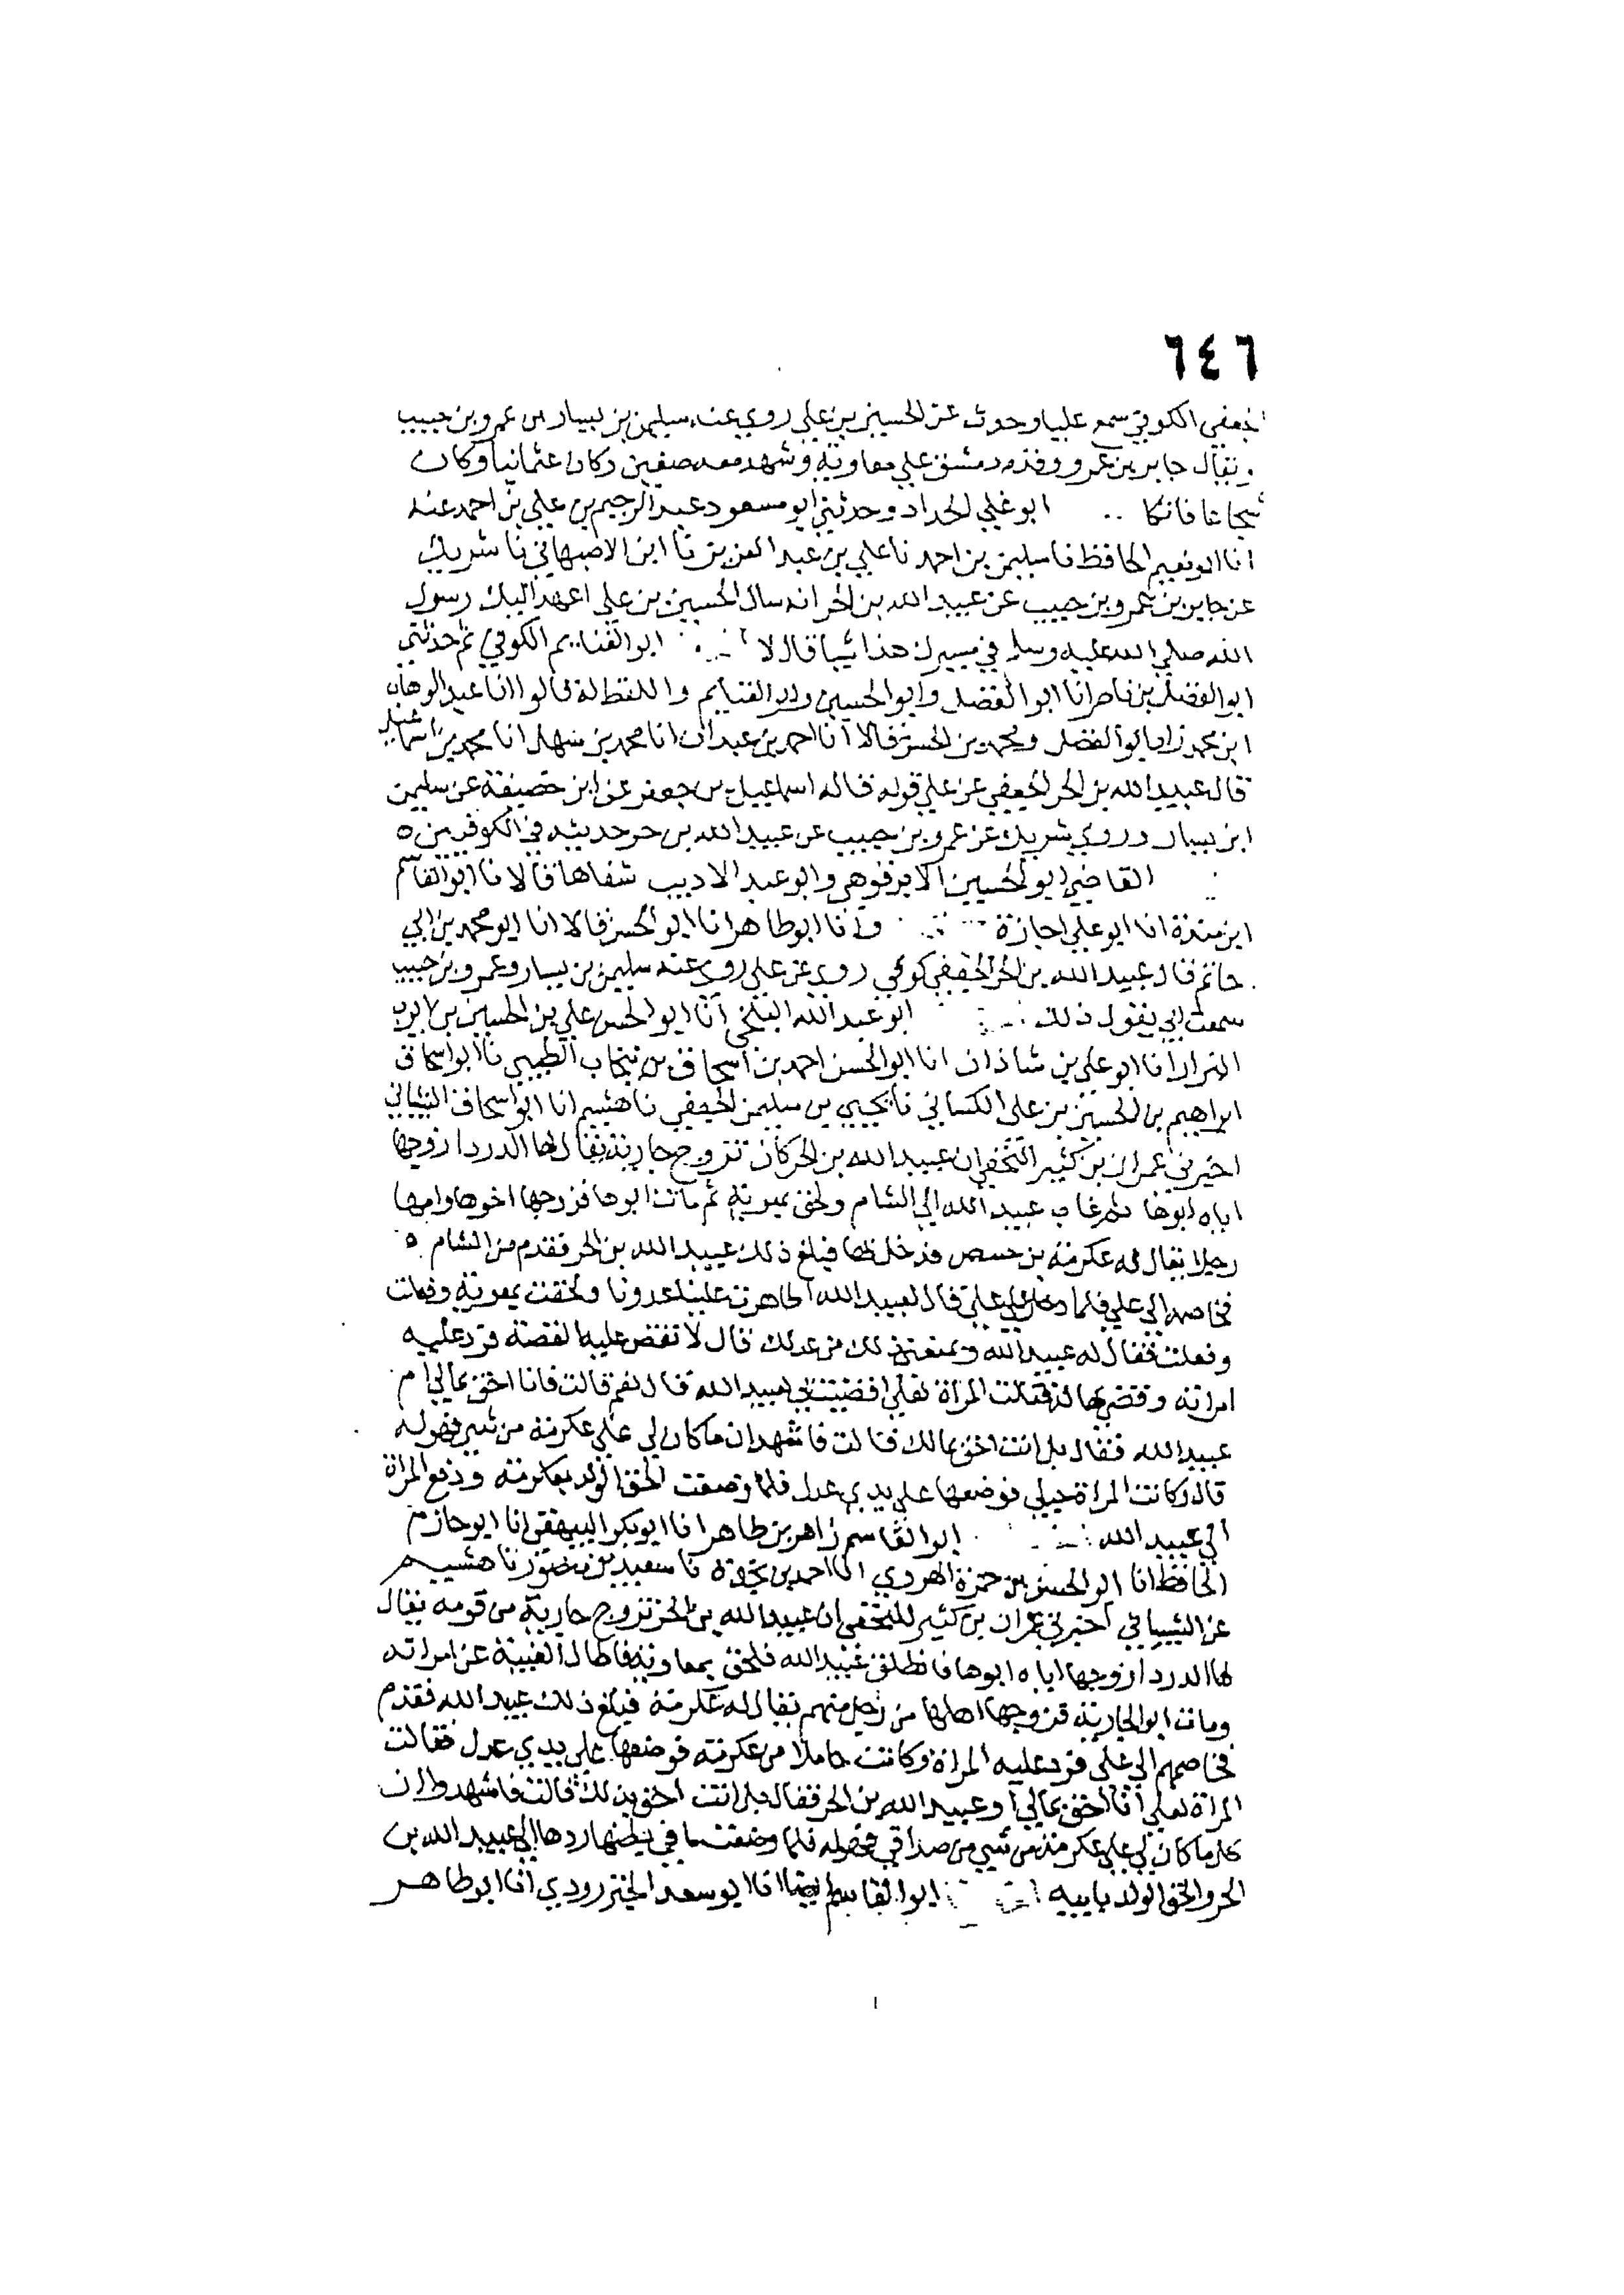 ٦٤٦
الجعفي الكوفي سمع عليا وحدث عن الحسين بن علي روي عنه سليمن بن يسار عمرو بن حبيب
ويقال جابر بن عمرو ووفد دمشق علي معاوية وشهد معه صفين وكان عثمانيا وكان
شجاعا فاتكا ابو علي الحداد وحدثني ابو مسعود عبد الرحيم بن علي بن احمد عنه
انا ابو نعيم الحافظ نا سليمن بن احمد نا علي بن عبد العزيز نا ابن الاصبهاني نا شريك
عن جابر بن عمرو بن حبيب عن عبيد الله بن الحر انه سال الحسين بن علي اعهد اليك رسول
الله صلي الله عليه وسلم في مسيرك هذا شيا قال لا ابو الغنايم الكوفي ثم حدثني
ابو الفضل بن ناصر انا ابو الفضل وابو الحسين وابو الغنايم واللفظ له قالوا انا عبد الوهاب
ابن محمد زاد ابو الفضل ومحمد بن الحسن قالا انا احمد بن عبدان انا محمد بن سهل انا محمد بن اسماعيل
قال عبيد الله بن الحر الجعفي عن علي قوله قاله اسماعيل بن جعفر عن ابن خصيفة عن سليمن
ابن يسار وروي شريك عن عمرو بن حبيب عن عبيد الله بن حر حديثه في الكوفيين ه
القاضي ابو الحسين الابرقوهي وابو عبد الاديب شفاها قالا نا ابو القاسم
ابن مندة انا ابو علي اجازة وانا ابو طاهر انا ابو الحسن قالا انا ابو محمد بن ابي
حاتم قال عبيد الله بن الحر الجعفي كوفي روي عن علي روي عنه سليمن بن يسار وعمرو بن حبيب
سمعت ابي يقول ذلك ابو عبد الله البلخي انا ابو الحسن علي بن الحسين بن ايوب
البزار انا ابو علي بن شاذان انا ابو الحسن احمد بن اسحاق بن نيخاب الطيبي نا ابو اسحاق
ابراهيم بن الحسين بن علي الكسائي نا يحيي بن سليمن الجعفي نا هشيم انا ابو اسحاق الشيباني
اخبرني عمران بن كثير النخعي ان عبيد الله بن الحر كان تزوج جارية يقال لها الدردا زوجها
اياه ابوها ثم غاب عبيد الله الي الشام ولحق بمعوية ثم مات ابوها فزوجها اخوها وامها
رجلا يقال له عكرمة بن فدخل بها فبلغ ذلك عبيد الله بن الحر فقدم من الشام ه
فخاصمه الي علي فلما دخل علي علي قال لعبيد الله اظاهرت علينا عدونا ولحقت بمعوية وفعلت
وفعلت فقال له عبيد الله ويمنعني ذلك من عدلك قال لا فقص عليه القصة فرد عليه
امراته وقضي بها له فقالت المراة لعلي اقضيت بي لعبيد الله قال نعم قالت فانا احق بمالي ام
عبيد الله فقال بل انت احق بمالك قالت فاشهد ان ما كان لي علي عكرمة من شي فهو له
قال وكانت المراة حبلي فوضعها علي يدي عدل فلما وضعت الحق الولد بعكرمة ودفع المراة
الي عبيد الله ابو القاسم زاهر بن طاهر انا ابو بكر البيهقي انا ابو حازم
الحافظ انا ابو الحسن بن حمزة الهروي انا احمد بن نجدة نا سعيد بن منصور نا هشيم
عن الشيباني اخبرني عمران بن كثير النخعي ان عبيد الله بن الحر تزوج جارية من قومه يقال
لها الدردا زوجها اياه ابوها فانطلق عبيد الله فلحق بمعاوية فاطال الغيبة عن امراته
ومات ابو الجارية فزوجها اهلها من رجل منهم يقال له عكرمة فبلغ ذلك عبيد الله فقدم
فخاصمهم الي علي فرد عليه المراة وكانت حاملا من عكرمة فوضعها علي يدي عدل فقالت
المراة لعلي انا احق بمالي او عبيد الله بن الحر فقال بل انت احق بذلك قالت فاشهدوا ان
كل ما كان لي علي عكرمة من شي من صداقي فهو له فلما وضعت ما في بطنها ردها الي عبيد الله بن
الحر والحق الولد بابيه ابو القاسم ايضا انا ابو سعد الجنزرودي انا ابو طاهر